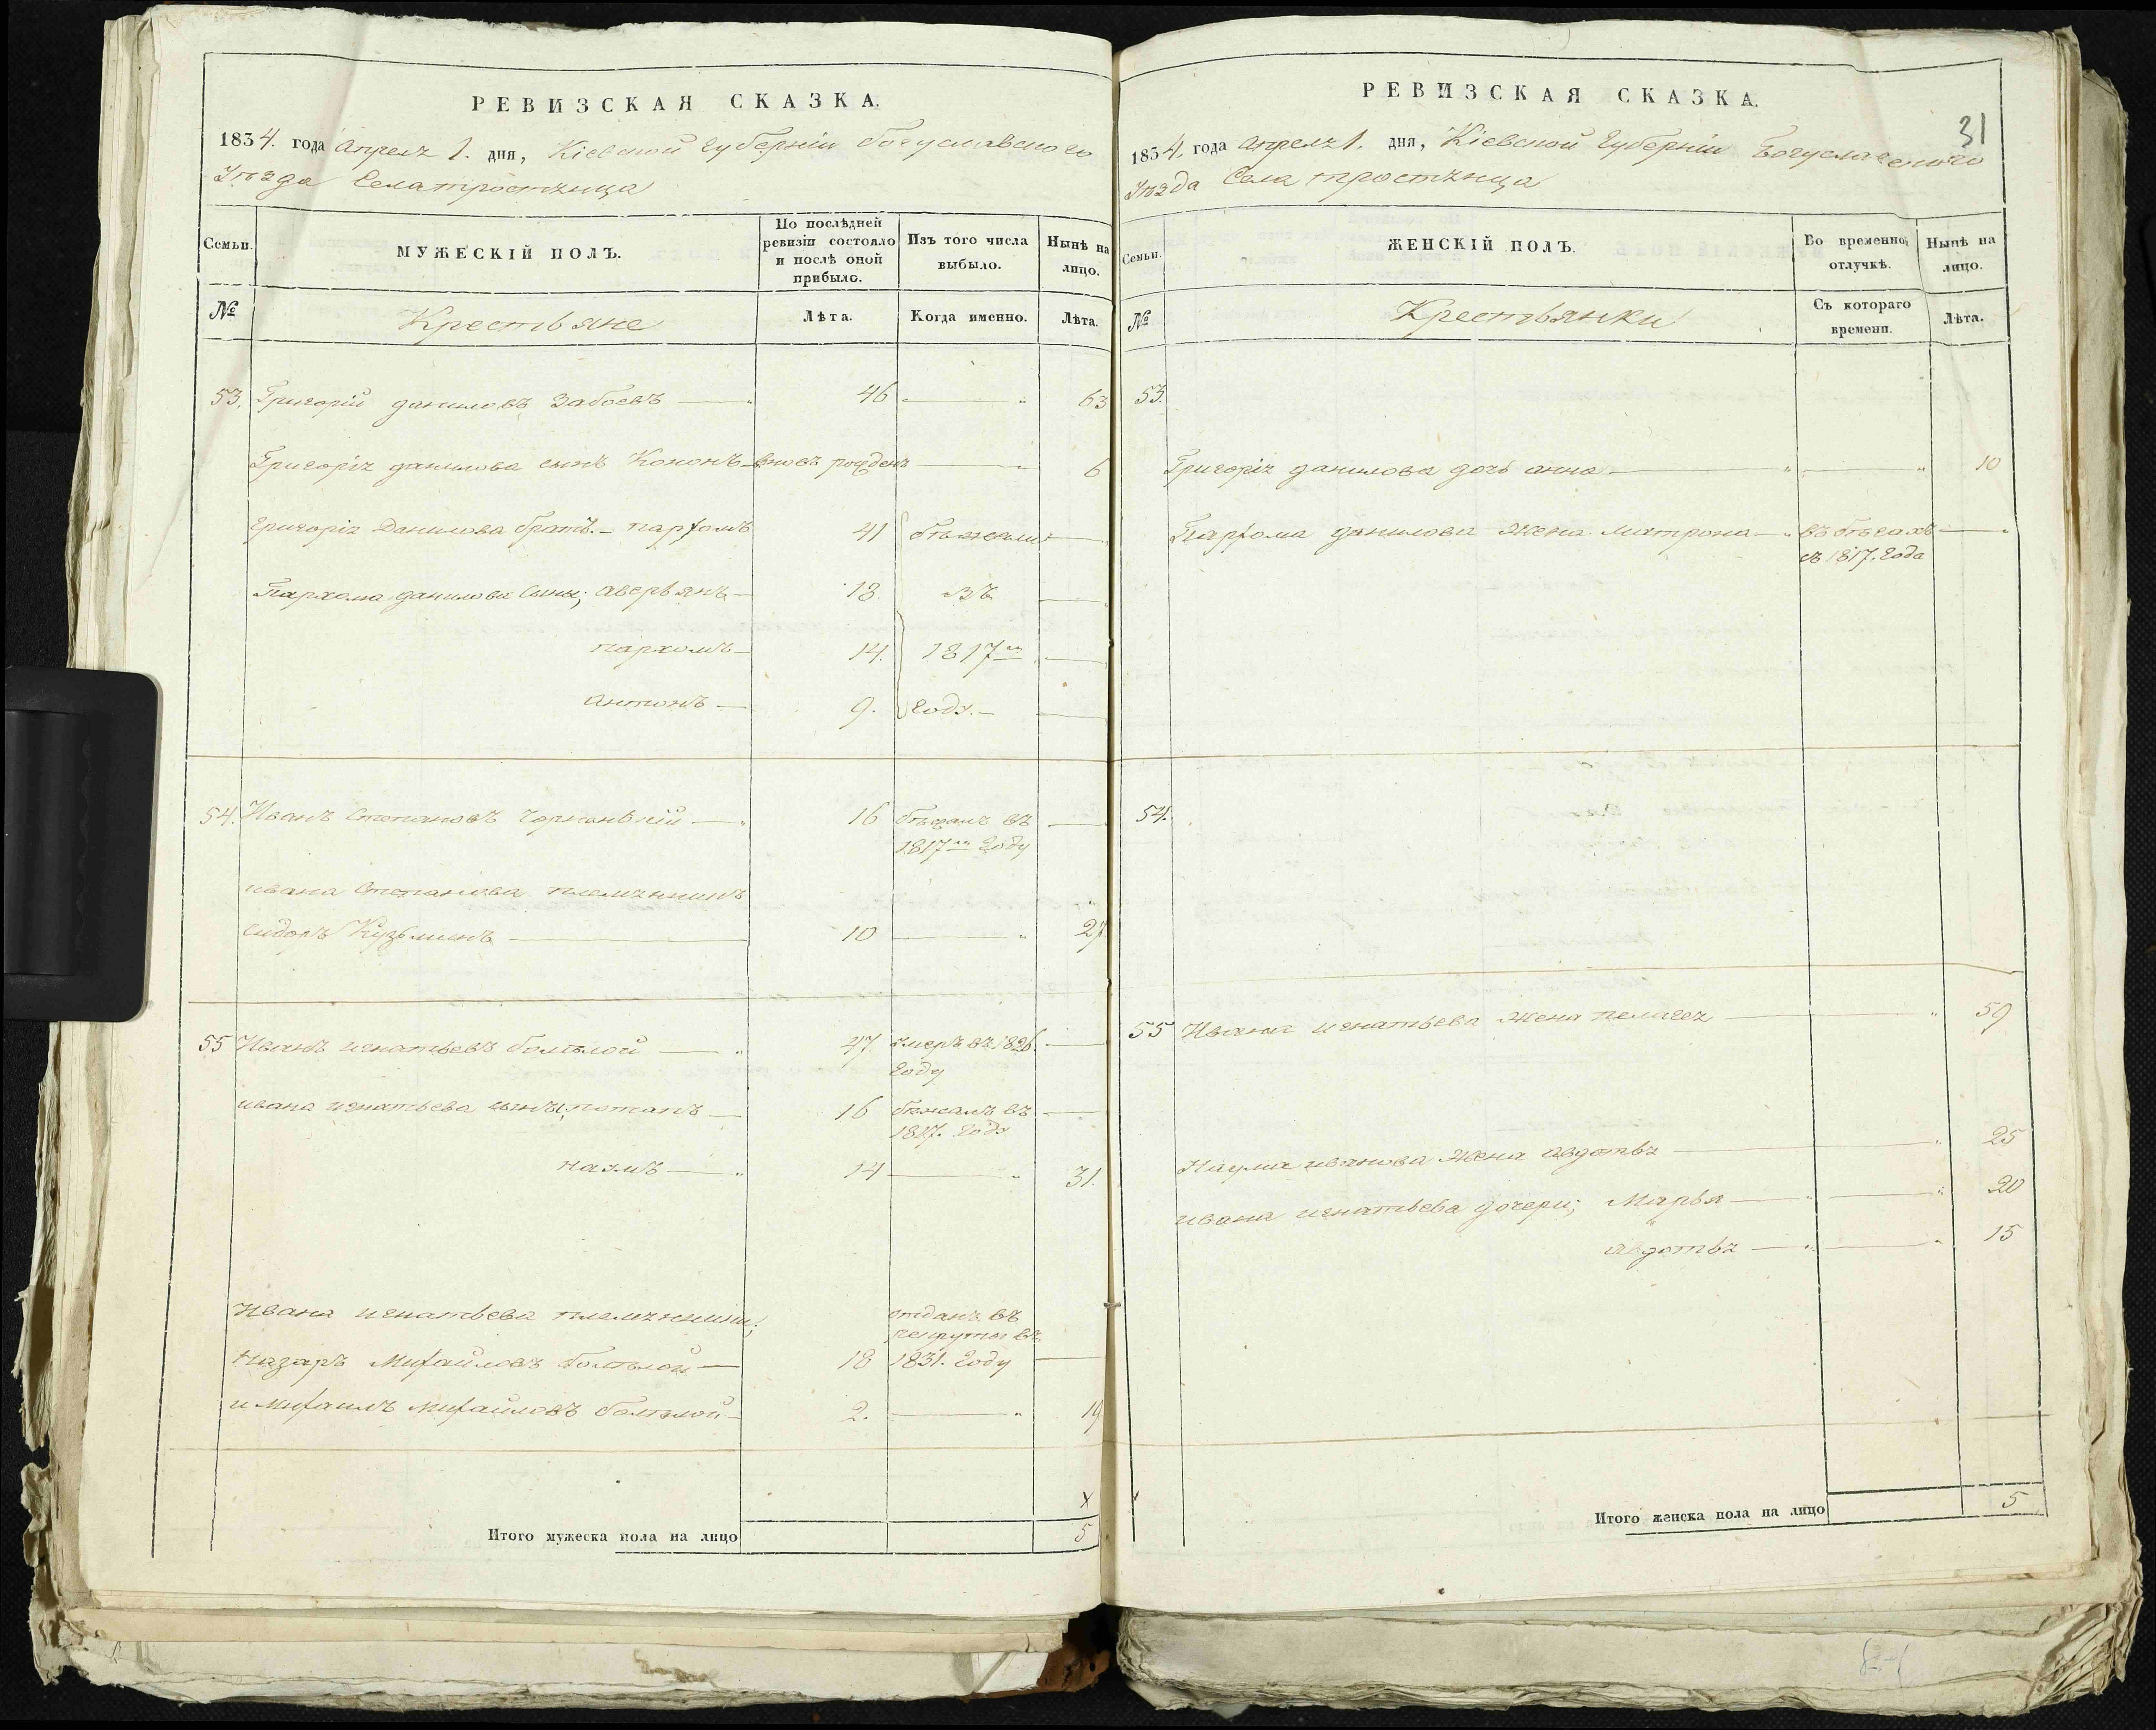 РЕВИЗСКАЯ СКАЗКА.
1834. года Апреля 1. дня, Кіевской Губерніи Богуславского
Уѣзда Села тростянца
Семьи.
МУЖЕСКІЙ ПОЛЪ.
По послѣдней ревизіи состояло и послѣ оной прибыло.
Изъ того числа выбыло.
Нынѣ на лицо.
№
Крестьяне
Лѣта.
Когда именно.
Лѣта.
53. Григорій даниловъ Забоевъ — 46 — 63
Григорія данилова сынъ Кононъ — вновь рожденъ — 6
Григорія Данилова братъ. – парфомъ 41 бѣжали —
Пархома данилова сыны; аверьянъ — 18. въ —
пархомъ — 14. 1817м —
антонъ — 9. Году. — —
54. Иванъ Степановъ — 16 бѣжалъ въ —
1817м Году
ивана Степанова племянникъ
сидоръ Кузьминъ — 10 — 27
55 Иванъ игнатьевъ — 47. умеръ въ 1826. —
Году
ивана игнатьева сыны; потапъ — 16 бѣжалъ въ —
1817. Году
наумъ — 14 — 31.
Ивана игнатьева племянники;
отданъ въ
рекруты въ
Назаръ Михайловъ — 18 1831. Году —
и михаилъ михайловъ — 2. — 19
х
Итого мужеска пола на лицо 5
РЕВИЗСКАЯ СКАЗКА.
31
1834. года апреля 1. дня, Кіевской Губерніи Богуславского
Уѣзда Села тростянца
Семьи.
ЖЕНСКІЙ ПОЛЪ.
Во временной отлучкѣ.
Нынѣ на лицо.
№
Крестьянки
Съ котораго времени.
Лѣта.
53.
Григорія данилова дочь анна — — 10
Парфома данилова жена матрона — въ бѣгахъ —
съ 1817. Года
54.
55 Ивана игнатьева жена пелагея — 59
Наума иванова жена авдотья — 25
ивана игнатьева дочери; Марья — — 20
авдотья — — 15
Итого женска пола на лицо 5